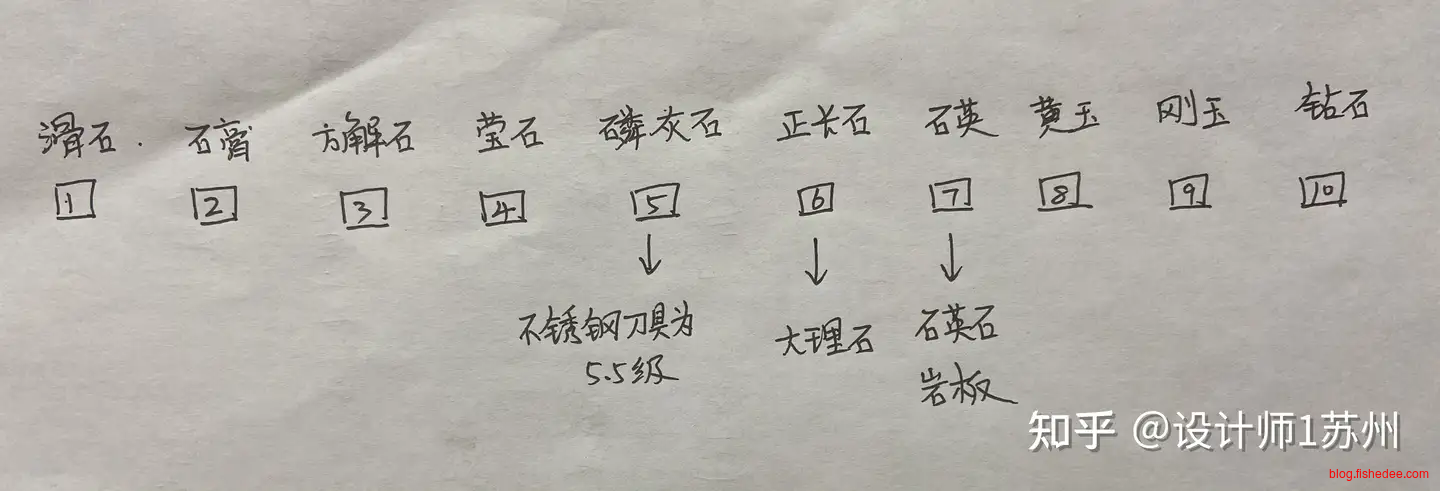 滑石. 石膏 方解石 萤石 磷灰石 正长石 石英 黄玉 刚玉 钻石
1 2 3 4 5 6 7 8 9 10
不锈钢刀具为
5.5级
大理石
石英石
岩板
知乎 @设计师1苏州
blog.fishedee.com